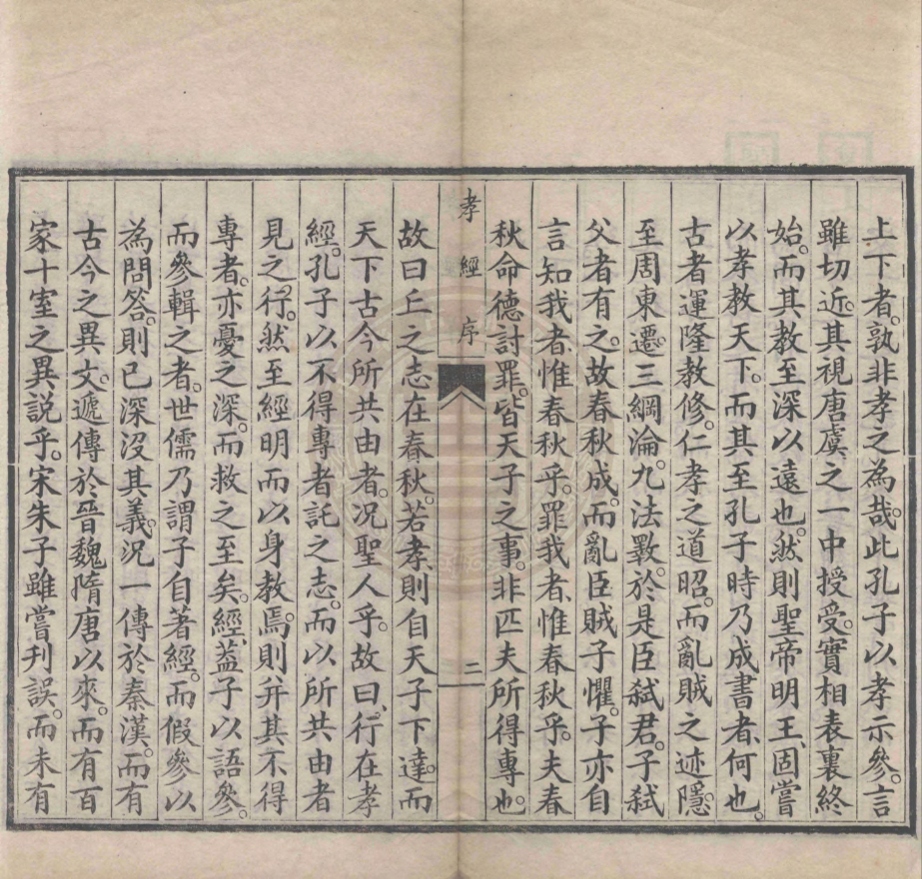 上下者。孰非孝之為哉。此孔子以孝示參。言
雖切近。其視唐虞之一中授受。實相表裏終
始。而其教至深以遠也。然則聖帝明王、固嘗
以孝教天下。而其至孔子時乃成書者、何也。
古者運隆教修。仁孝之道昭。而亂賊之迹隱。
至周東遷。三綱淪。九法斁。於是臣弒君。子弒
父者有之。故春秋成。而亂臣賊子懼。子亦自
言知我者、惟春秋乎。罪我者、惟春秋乎。夫春
秋命德討罪。皆天子之事。非匹夫所得專也。
孝經 序 二
故曰丘之志在春秋。若孝、則自天子下達。而
天下古今所共由者。況聖人乎。故曰、行在孝
經。孔子以不得專者託之志。而以所共由者
見之行。然至經明而以身教焉。則幷其不得
專者。亦憂之深。而救之至矣。經、蓋子以語參。
而參輯之者。世儒乃謂子自著經。而假參以
為問答。則已深沒其義。況一傳於秦漢、而有
古今之異文。遞傳於晉魏隋唐以來。而有百
家十室之異說乎。宋朱子雖嘗刊誤。而未有